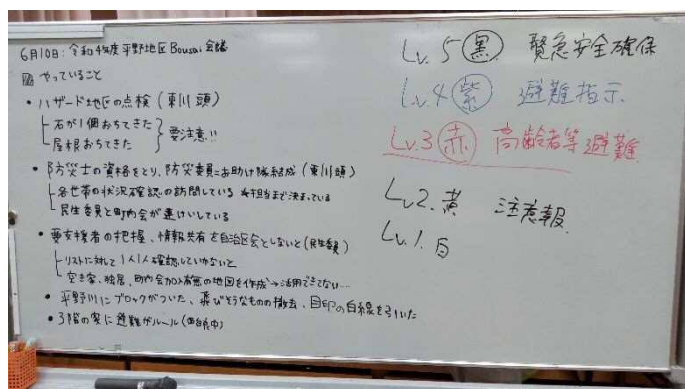 6月10日:令和4年度平野地区Bousai会議
やっていること
• ハザード地区の点検(東川頭)
石が1個おちてきた
屋根おちてきた
要注意!!
• 防災士の資格をとり、防災委員=お助け隊結成(東川頭)
各世帯の状況確認の訪問している ※担当まで決まっている
民生委員と町内会が連けいしている
• 要支援者の把握、情報共有を自治区会としないと(民生委員)
リストに対して1人1人確認していかないと
空き家、独居、町内会加入有無の地図を作成→活用できてない…
• 平野川にブロックがついた、飛びそうなものの撤去、目印の白線を引いた
• 3階の家に避難がルール
Lv.5 黒 緊急安全確保
Lv.4 紫 避難指示
Lv.3 赤 高齢者等避難
Lv2. 黄 注意報
Lv.1. 白